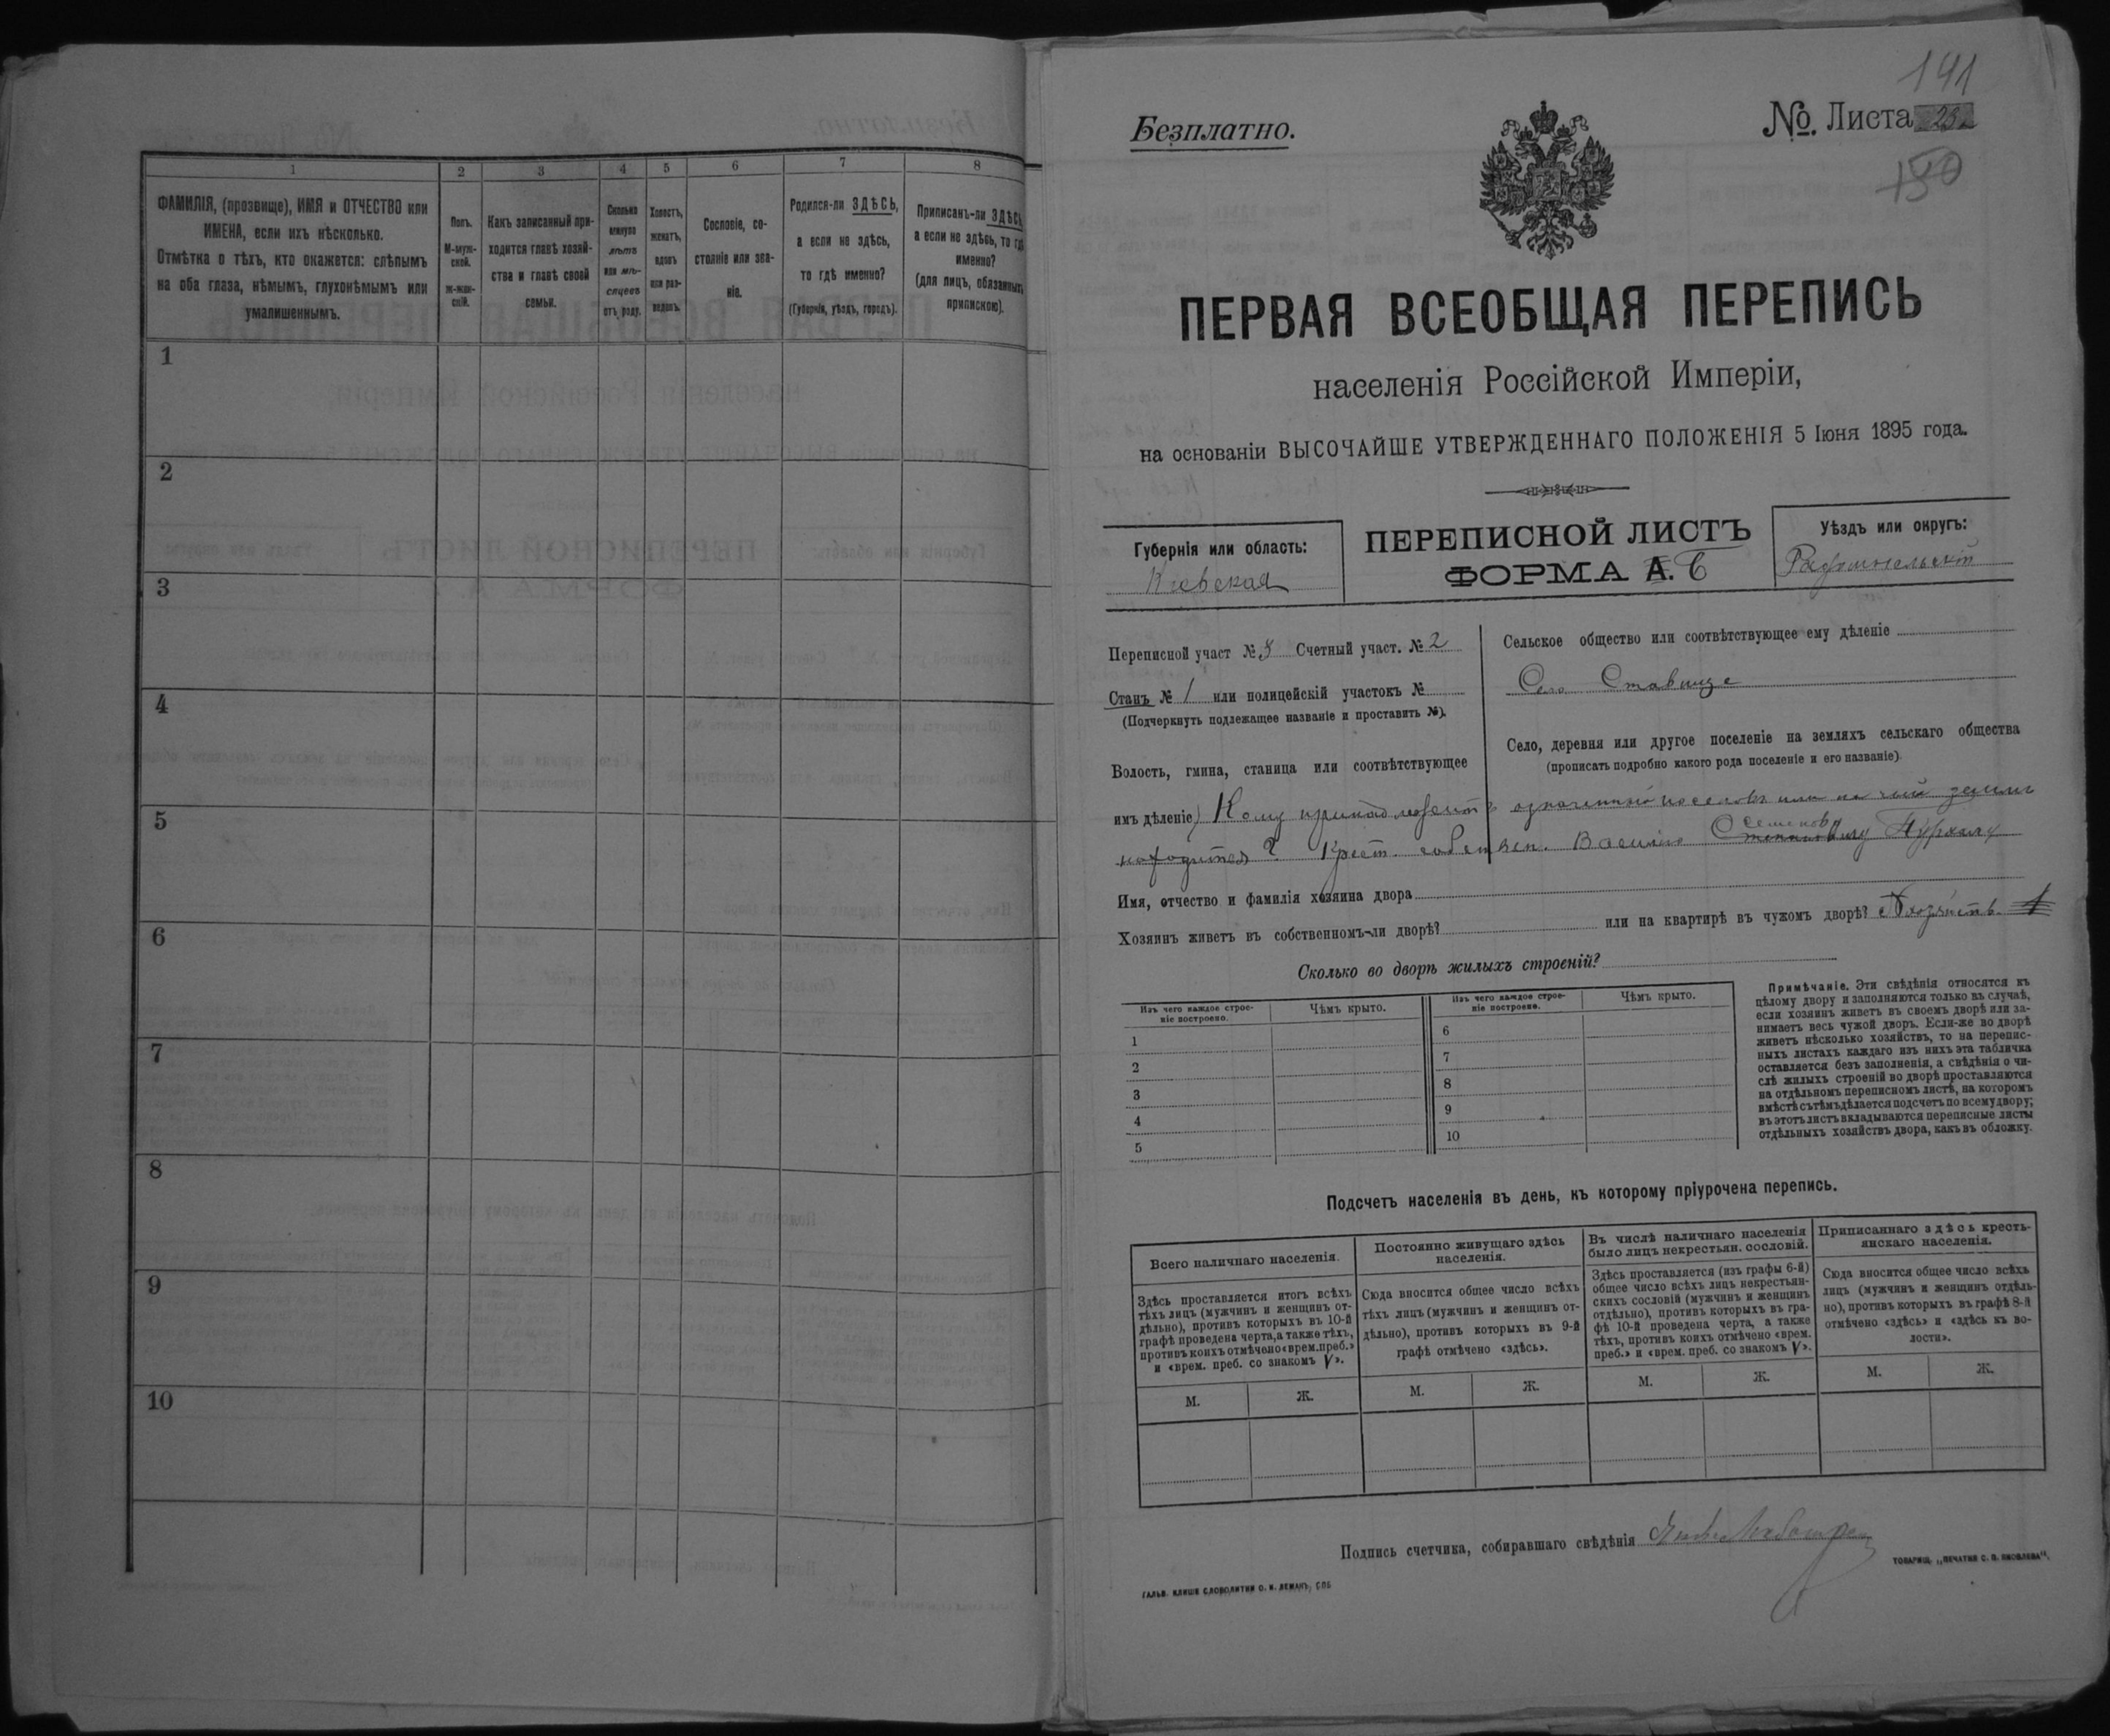 1 2 3 4 5 6 7 8
ФАМИЛІЯ, (прозвище), ИМЯ и ОТЧЕСТВО или
ИМЕНА, если ихъ нѣсколько.
Отмѣтка о тѣхъ, кто окажется: слѣпымъ
на оба глаза, нѣмымъ, глухонѣмымъ или
умалишеннымъ.
Полъ.
М-муж-
ской.
ж-жен-
скій.
Какъ записанный при-
ходится главѣ хозяй-
ства и главѣ своей
семьи.
Сколько
минуло
лѣтъ
или мѣ-
сяцевъ
отъ роду.
Холостъ,
женатъ,
вдовъ
или раз-
веденъ.
Сословіе, со-
стояніе или зва-
ніе.
Родился-ли ЗДѢСЬ,
а если не здѣсь,
то гдѣ именно?
(Губернія, уѣздъ, городъ).
Приписанъ-ли ЗДѢСЬ
а если не здѣсь, то гдѣ
именно?
(для лицъ, обязанныхъ
припискою).
1
2
3
4
5
6
7
8
9
10
141
Безплатно.
№ Листа 23
150
ПЕРВАЯ ВСЕОБЩАЯ ПЕРЕПИСЬ
населенія Россійской Имперіи,
на основаніи ВЫСОЧАЙШЕ УТВЕРЖДЕННАГО ПОЛОЖЕНІЯ 5 Іюня 1895 года.
Губернія или область:
Кіевская
ПЕРЕПИСНОЙ ЛИСТЪ
ФОРМА А. Б
Уѣздъ или округъ:
Радомысльскій
Переписной участ № Счетный участ. № 2
Станъ № 1 или полицейскій участокъ №
(Подчеркнуть подлежащее названіе и проставить №).
Волость, гмина, станица или соотвѣтствующее
имъ дѣленіе)
Сельское общество или соотвѣтствующее ему дѣленіе
Село Ставище
Село, деревня или другое поселеніе на земляхъ сельскаго общества
(прописать подробно какого рода поселеніе и его названіе).
Кому принадлежитъ означенный поселокъ или на чьей землѣ
находится? Крест. собствен. Василію Семенову
Имя, отчество и фамилія хозяина двора
Хозяинъ живетъ въ собственномъ-ли дворѣ? или на квартирѣ въ чужомъ дворѣ? хозяйств. 1
Сколько во дворѣ жилыхъ строеній?
Изъ чего каждое строе-
ніе построено.
Чѣмъ крыто.
1
2
3
4
5
Изъ чего каждое строе-
ніе построено.
Чѣмъ крыто.
6
7
8
9
10
Примѣчаніе. Эти свѣдѣнія относятся къ
цѣлому двору и заполняются только въ случаѣ,
если хозяинъ живетъ въ своемъ дворѣ или за-
нимаетъ весь чужой дворъ. Если-же во дворѣ
живетъ нѣсколько хозяйствъ, то на перепис-
ныхъ листахъ каждаго изъ нихъ эта табличка
оставляется безъ заполненія, а свѣдѣнія о чи-
слѣ жилыхъ строеній во дворѣ проставляются
на отдѣльномъ переписномъ листѣ, на которомъ
вмѣстѣ съ тѣмъ дѣлается подсчетъ по всему двору;
въ этотъ листъ вкладываются переписные листы
отдѣльныхъ хозяйствъ двора, какъ въ обложку.
Подсчетъ населенія въ день, къ которому пріурочена перепись.
Всего наличнаго населенія.
Здѣсь проставляется итогъ всѣхъ
тѣхъ лицъ (мужчинъ и женщинъ от-
дѣльно), противъ которыхъ въ 10-й
графѣ проведена черта, а также тѣхъ,
противъ коихъ отмѣчено «врем. преб.»
и «врем. преб. со знакомъ V».
М. Ж.
Постоянно живущаго здѣсь
населенія.
Сюда вносится общее число всѣхъ
тѣхъ лицъ (мужчинъ и женщинъ от-
дѣльно), противъ которыхъ въ 9-й
графѣ отмѣчено «здѣсь».
М. Ж.
Въ числѣ наличнаго населенія
было лицъ некрестьян. сословій.
Здѣсь проставляется (изъ графы 6-й)
общее число всѣхъ лицъ некрестьян-
скихъ сословій (мужчинъ и женщинъ
отдѣльно), противъ которыхъ въ гра-
фѣ 10-й проведена черта, а также
тѣхъ, противъ коихъ отмѣчено «врем.
преб.» и «врем. преб. со знакомъ V».
М. Ж.
Приписаннаго здѣсь кресть-
янскаго населенія.
Сюда вносится общее число всѣхъ
лицъ (мужчинъ и женщинъ отдѣль-
но), противъ которыхъ въ графѣ 8-й
отмѣчено «здѣсь» и «здѣсь къ во-
лости».
М. Ж.
Подпись счетчика, собиравшаго свѣдѣнія
ГАЛЬВ. КЛИШЕ СЛОВОЛИТНИ О. И. ЛЕМАНЪ, СПБ
ТОВАРИЩ. „ПЕЧАТНЯ С. П. ЯКОВЛЕВА“.